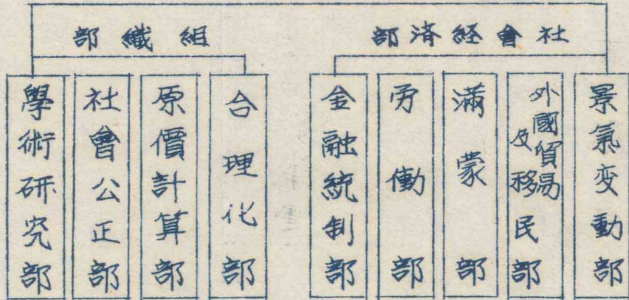 社會経済部
景氣変動部
外國貿易
及移民部
満蒙部
労働部
金融統制部
組織部
合理化部
原價計算部
社會公正部
學術研究部